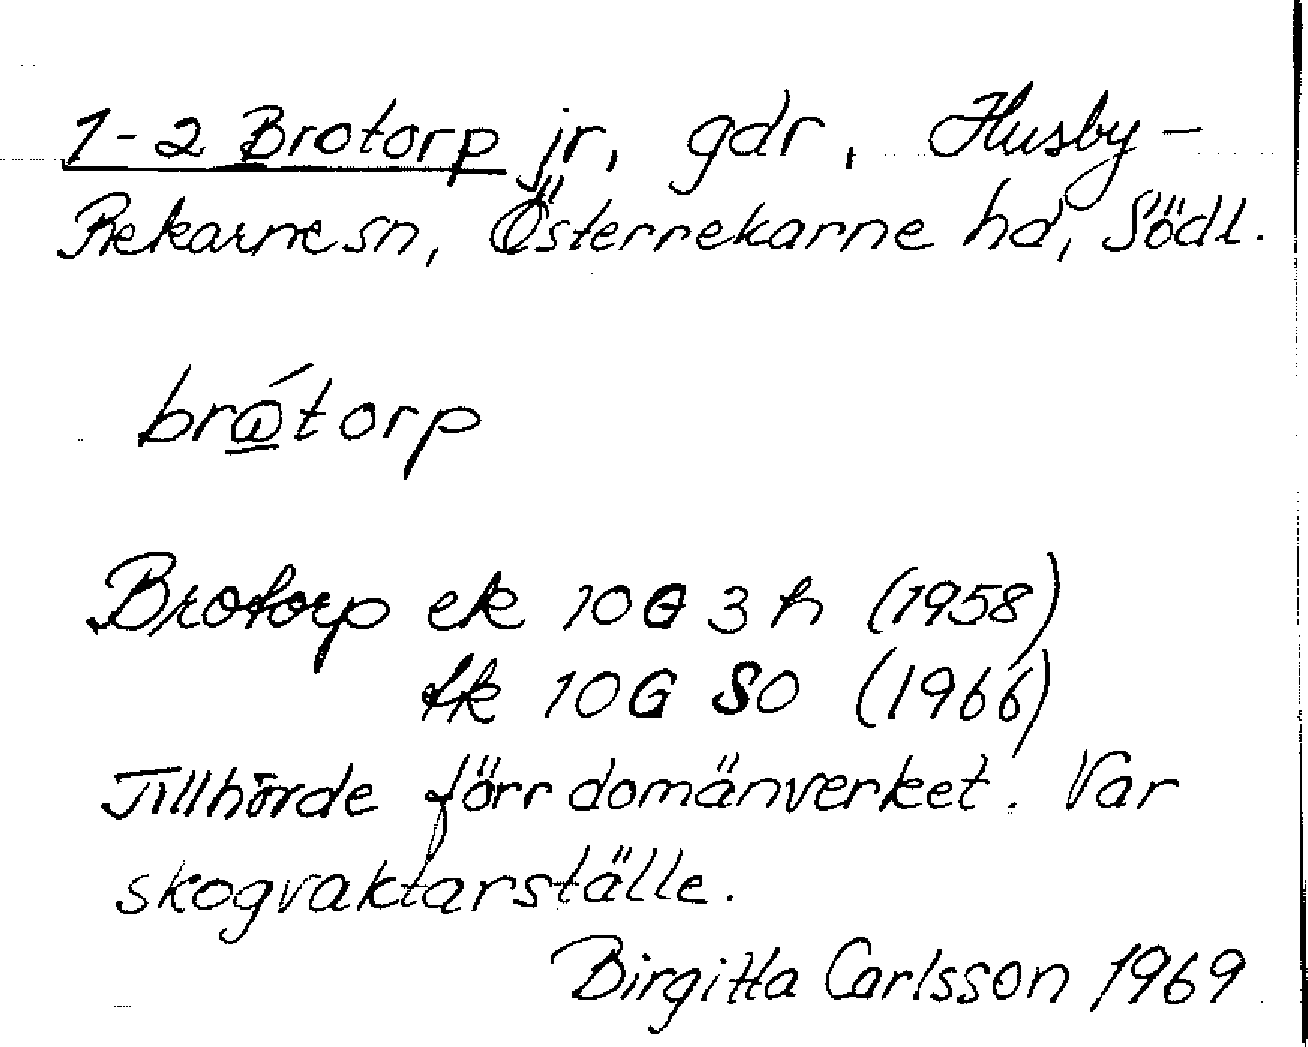 1-2 Brotorp jr, gdr, Husby-
Rekarne sn, Österrekarne hd, Södl.
brώtorp
Brotorp ek 10G 3h (1958)
fk 10G SO (1966)
Tillhörde förr domänverket. Var
skogvaktarställe.
Birgitta Carlsson 1969